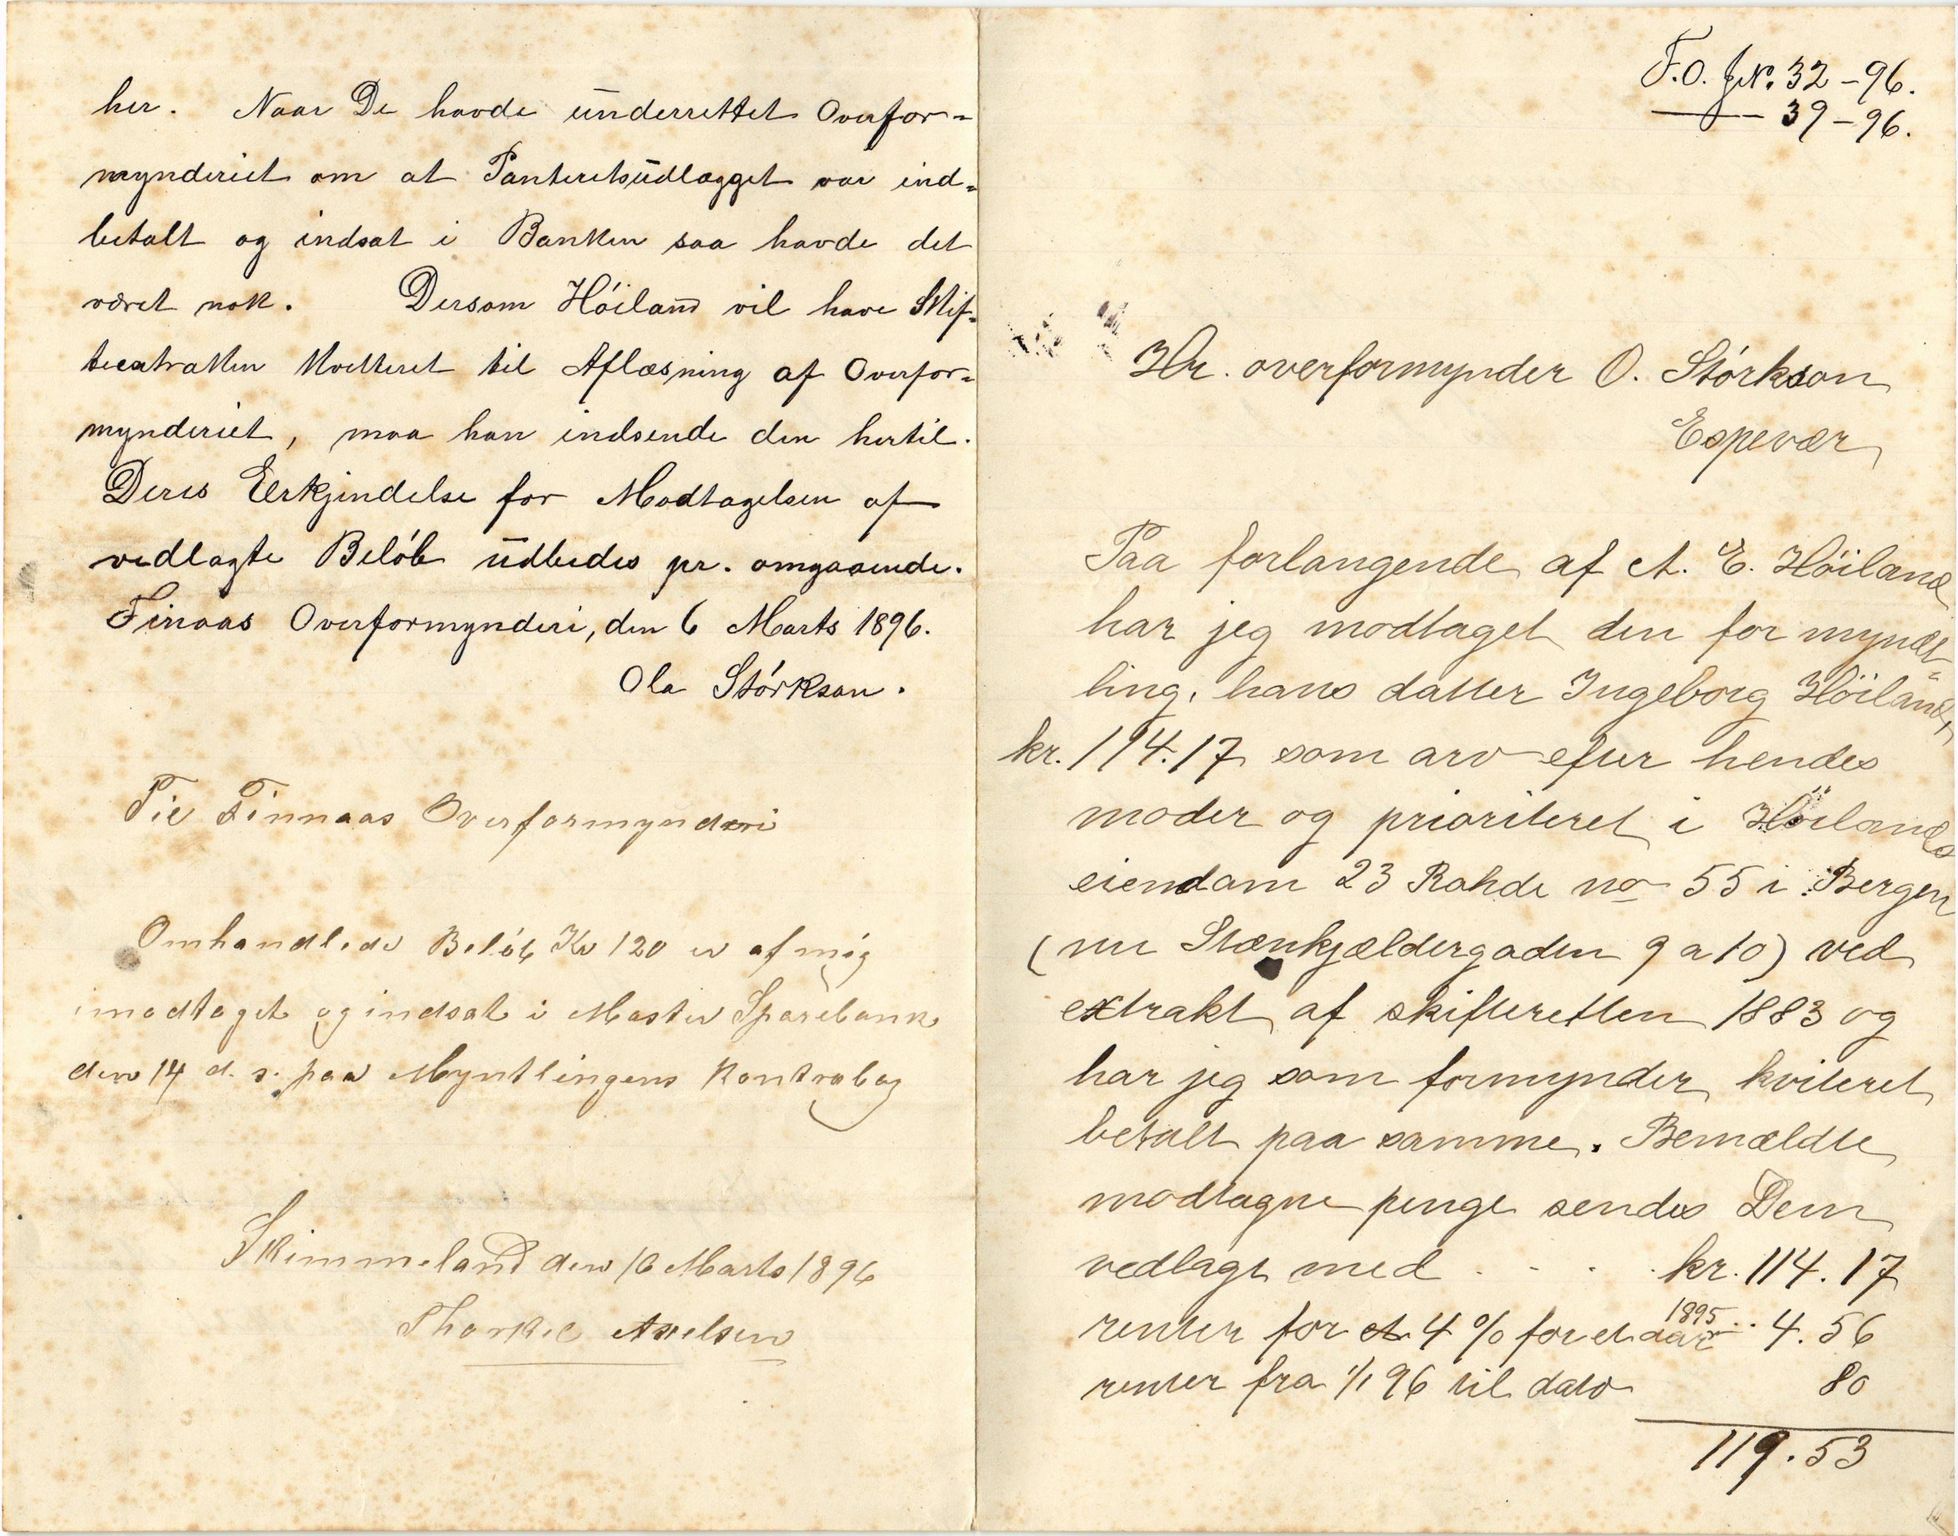 her. Naar De havde underrettet Overfor-
mynderiet om at Panteretsudlægget var ind-
betalt og indsat i Banken saa havde det
været nok. Dersom Höiland vil have Skif-
teextrakten kvitteret til Aflæsning af Overfor-
mynderiet, maa han indsende den hertil.
Deres Erkjendelse for Modtagelsen af
vedlagte Belöb udbedes pr. omgaaende.
Finaas Overformynderi, den 6 Marts 1896.
Ola Störkson.
Til Finnaas Overformynderi
Omhandlede Belöb Kr 120 er af mig
modtaget og indsat i Moster Sparebank
den 14 d. s. paa Myntlingens Kontrabog
Skimmeland den 16 Marts 1896
Thorkel Axelsen
F.O. JN. 32-96.
39-96.
Hr. overformynder O. Störkson
Espevær
Paa forlangende af A. E. Höiland
har jeg modtaget den for mynd-
ling, hans datter Ingeborg Höiland,
kr. 114.17 som arv efter hendes
moder og prioriteret i Höilands
eiendom 23 Rohde no 55 i Bergen
(nu Stenkjældergaden 9 a 10) ved
extrakt af skifteretten 1883 og
har jeg som formynder kviteret
betalt paa samme. Bemældte
modtagne penge sendes Dem
vedlagt med . . . . kr. 114.17
renter for et 4 % for et aar 1895 .. 4.56
renter fra 1/1 96 til dato 80
119.53